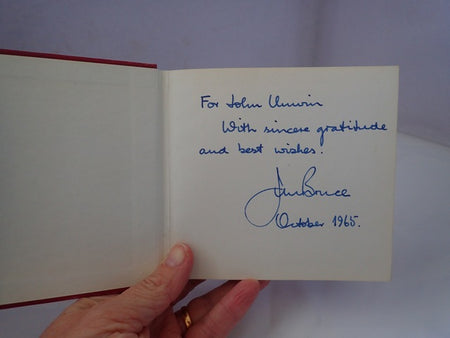 For John Unwin
With sincere gratitude
and best wishes.
Jim Bruce
October 1965.